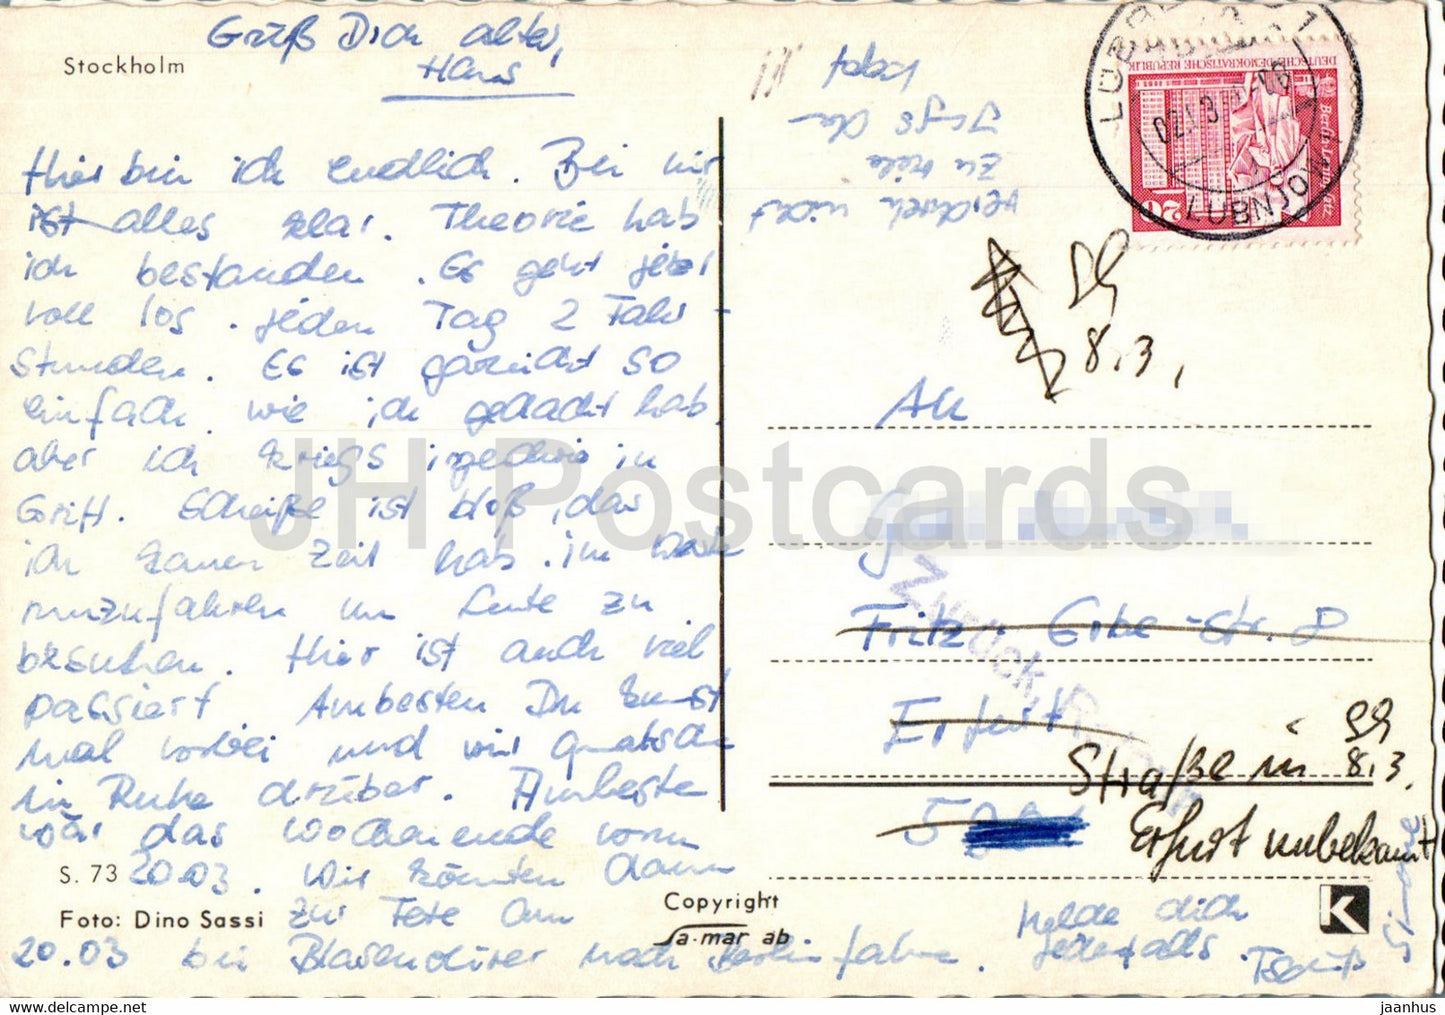 Grüß Dich alter,
Hans
Stockholm
Hier bin ich endlich. Bei mir
ist alles klar. Theorie hab
ich bestanden. Es geht jetzt
voll los. jeden Tag 2 Fahr-
stunden. Es ist garnicht so
einfach wie ich gedacht hab,
aber ich kriegs irgedwie in
Griff. Scheiße ist bloß, das
ich kaum Zeit hab. im
rumzufahren um Leute zu
besuchen. Hier ist auch viel
passiert. Ambesten Du kommst
mal vorbei und wir quatschen
in Ruhe drüber. Ambeste
wär das Wochenende vom
20.03. Wir könnten dann
zur Fete am
20.03 bei nach Berlin fahren. Melde dich
jedenfalls. Tschüß
Simone
S. 73
Foto: Dino Sassi
Copyright
sa-mar ab
K
zu viele
nicht
DEUTSCHE DEMOKRATISCHE REPUBLIK
Berlin, Leninplatz
20
LÜBBENAU 1
LUBNJOW
8.3.
An
Fritz-Erbe-Str. 8
Erfurt
Zurück, Retour
Straße in
8.3.
Erfurt unbekannt
JH Postcards
www.hippostcard.com/store/jh-postcards-online
jaanhus